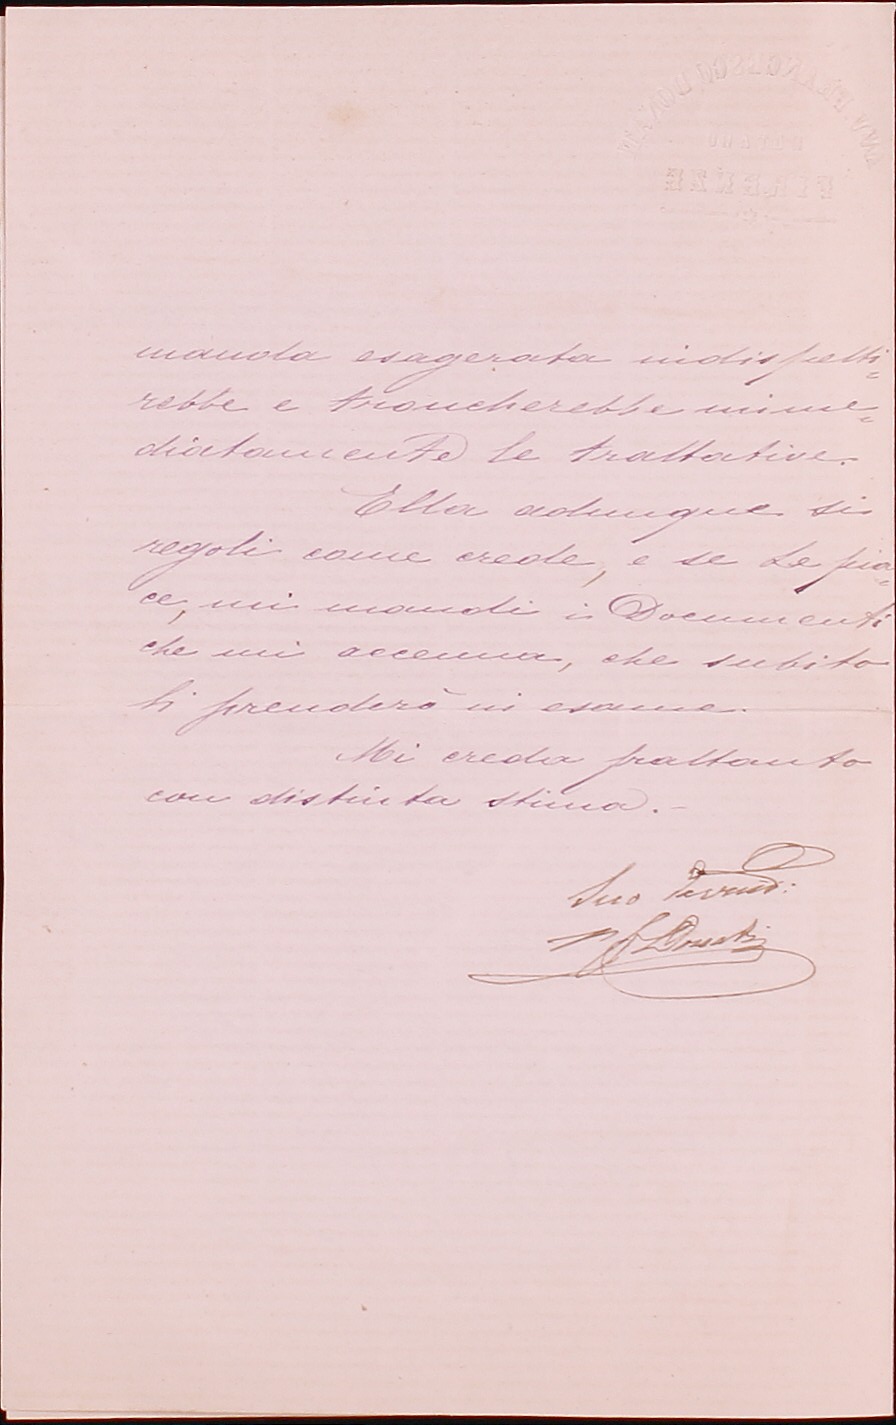 AVV. FRANCESCO DONATI
NOTARO
FIRENZE
manda esagerata indispetti=
rebbe e troncherebbe imme=
diatamente le trattative.
Ella adunque si
regoli come crede, e se Le pia=
ce, mi mandi i Documenti
che mi accenna, che subito
li prenderò in esame.
Mi creda frattanto
con distinta stima. –
Suo Devmo:
F Donati